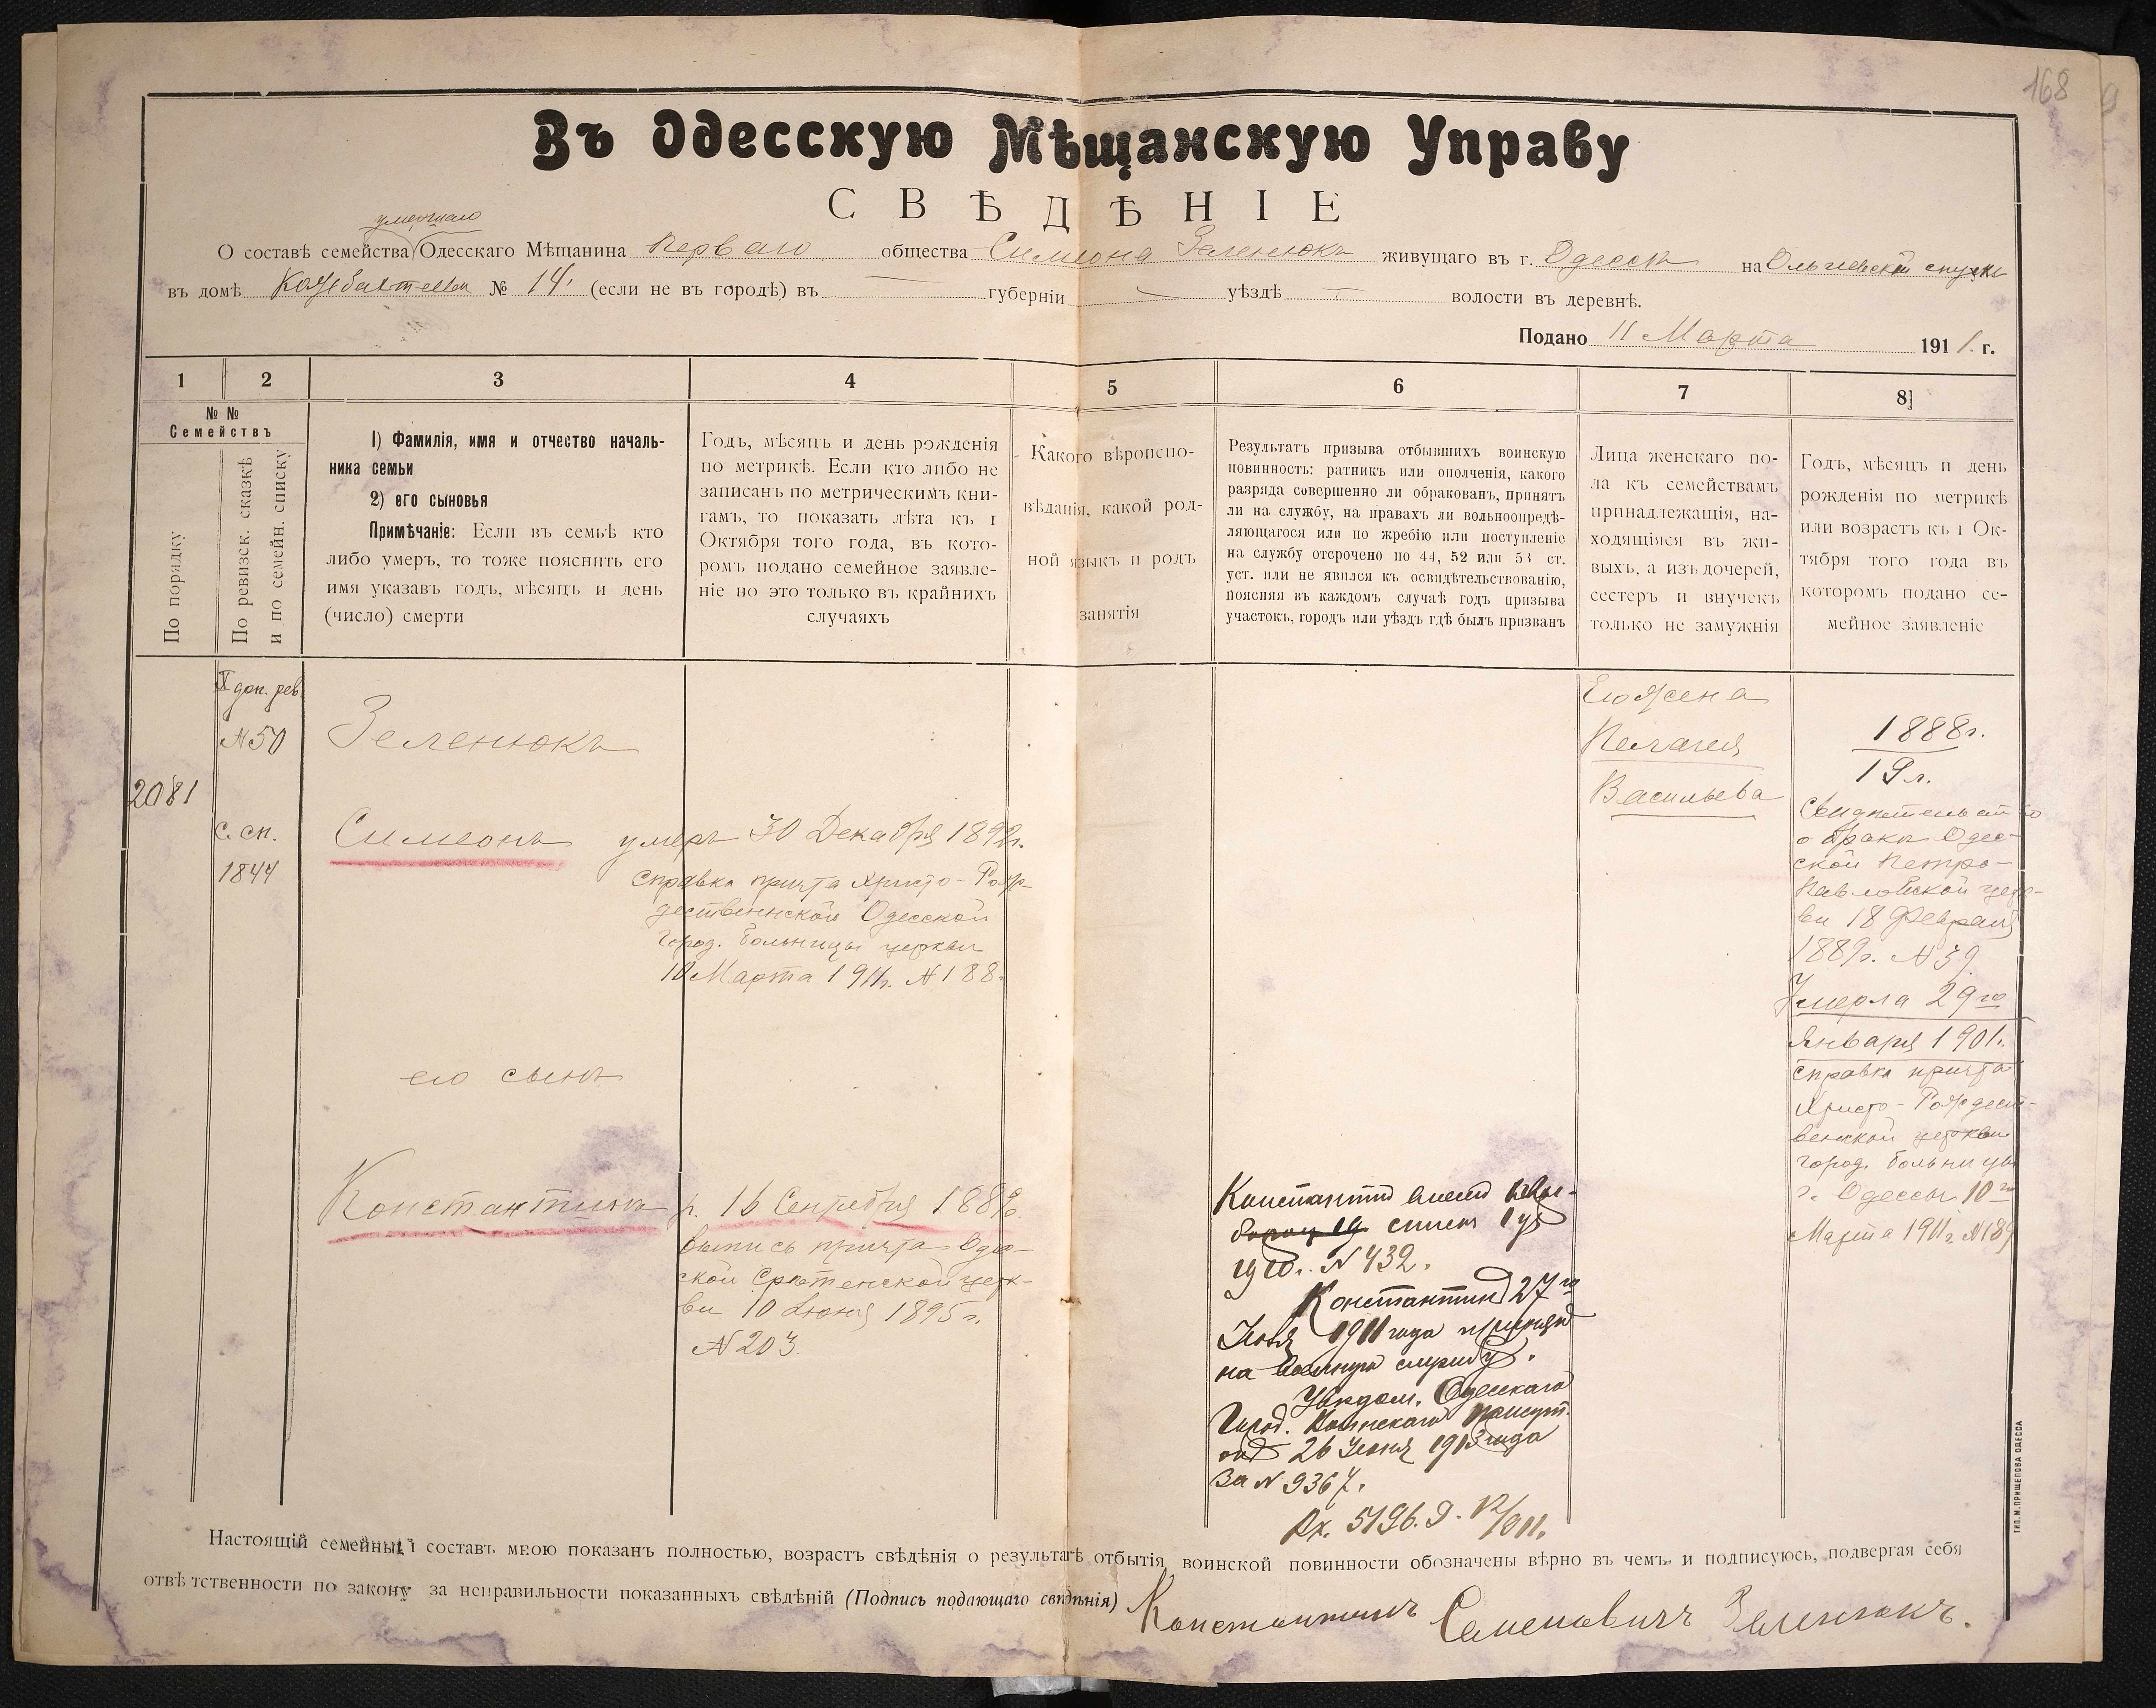 168
Въ Одесскую Мѣщанскую Управу
СВѢДѢНІЕ
умершаго
О составѣ семейства Одесскаго Мѣщанина Перваго общества Симеона Зеленюкъ живущаго въ г. Одессѣ на Ольгіевскій спускъ
въ домѣ № 14. (если не въ городѣ) въ губерніи уѣздѣ волости въ деревнѣ.
Подано 11 Марта 1911. г.
1
2
3
4
5
6
7
8]
№ №
Семействъ
По порядку
По ревизск. сказкѣ
и по семейн. списку
1) Фамилія, имя и отчество началь-
ника семьи
2) его сыновья
Примѣчаніе: Если въ семьѣ кто
либо умеръ, то тоже пояснить его
имя указавъ годъ, мѣсяцъ и день
(число) смерти
Годъ, мѣсяцъ и день рожденія
по метрикѣ. Если кто либо не
записанъ по метрическимъ кни-
гамъ, то показать лѣта къ 1
Октября того года, въ кото-
ромъ подано семейное заявле-
ніе но это только въ крайнихъ
случаяхъ
Какого вѣроиспо-
вѣданія, какой род-
ной языкъ и родъ
занятія
Результатъ призыва отбывшихъ воинскую
повинность: ратникъ или ополченія, какого
разряда совершенно ли обракованъ, принятъ
ли на службу, на правахъ ли вольноопредѣ-
ляющагося или по жребію или поступленіе
на службу отсрочено по 44, 52 или 53 ст.
уст. или не явился къ освидѣтельствованію,
поясняя въ каждомъ случаѣ годъ призыва
участокъ, городъ или уѣздъ гдѣ былъ призванъ
Лица женскаго по-
ла къ семействамъ
принадлежащія, на-
ходящіяся въ жи-
выхъ, а изъ дочерей,
сестеръ и внучекъ
только не замужнія
Годъ, мѣсяцъ и день
рожденія по метрикѣ
или возрастъ къ 1 Ок-
тября того года въ
которомъ подано се-
мейное заявленіе
2081
X доп. рев.
№ 50
с. сп.
1844
Зеленюкъ
Симеонъ
умеръ 30 Декабря 1892г.
Справка причта Христо-Рож-
дественнской Одесской
Город. больницы церкви
10 Марта 1911г. № 188.
его сынъ
Константинъ
р. 16 Сентября 1889г.
выпись причта Одес-
ской Срѣтенской церк-
ви 10 Іюня 1895г.
№ 203.
Константин внесен
список
1910г. № 432.
Константин 27го
1911 года принят
на военную службу.
Увѣдом. Одесскаго
Город. Воинскаго Присут.
от 26 1913 года
За № 9367.
Вх. 5196. 9. 12/1911.
Его жена
Пелагея
Васильева
1888г.
19л.
Свидѣтельство
о бракѣ Одес-
ской Петро-
Павловской церк-
ви 18 Февраля
1889г. № 39.
Умерла 29го
Января 1901г.
Справка причта
Христо-Рождест-
венской церкви
город. больницы
г. Одессы 10го
Марта 1911г. № 189
Настоящій семейный составъ мною показанъ полностью, возрастъ свѣдѣнія о результатѣ отбытія воинской повинности обозначены вѣрно въ чемъ и подписуюсь, подвергая себя
отвѣтственности по закону за неправильности показанныхъ свѣдѣній (Подпись подающаго свѣдѣнія) Константинъ Семеновичъ Зеленюкъ.
ТИП. М. ПРИЩЕПОВА ОДЕССА